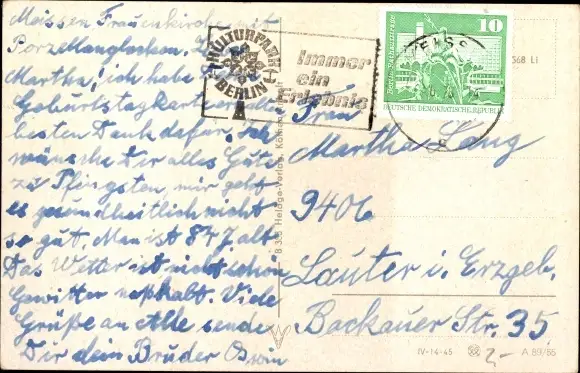 Meissen Frauenkirche mit
Porzellanglocken. Liebe
Martha! ich habe
Geburtstagkarte
besten Dank dafür, Ich
wünsche Dir alles Gute
zu Pfingsten, mir geht
es gesundheitlich nicht
so gut, Man ist 84 J. alt
Das Wetter ist nicht schön
Gewitter naßkalt. Viele
Grüße an Alle sendet
Dir dein Bruder Oswin
KULTURPARK
BERLIN
Immer
ein
Erlebnis
10
DEUTSCHE DEMOKRATISCHE REPUBLIK
568 LI
Frau
Martha Lang
9406
Lauter i. Erzgeb.
Bockauer Str. 35
Heldge-Verlag, Köthen
IV-14-45
A 89/55
2,-